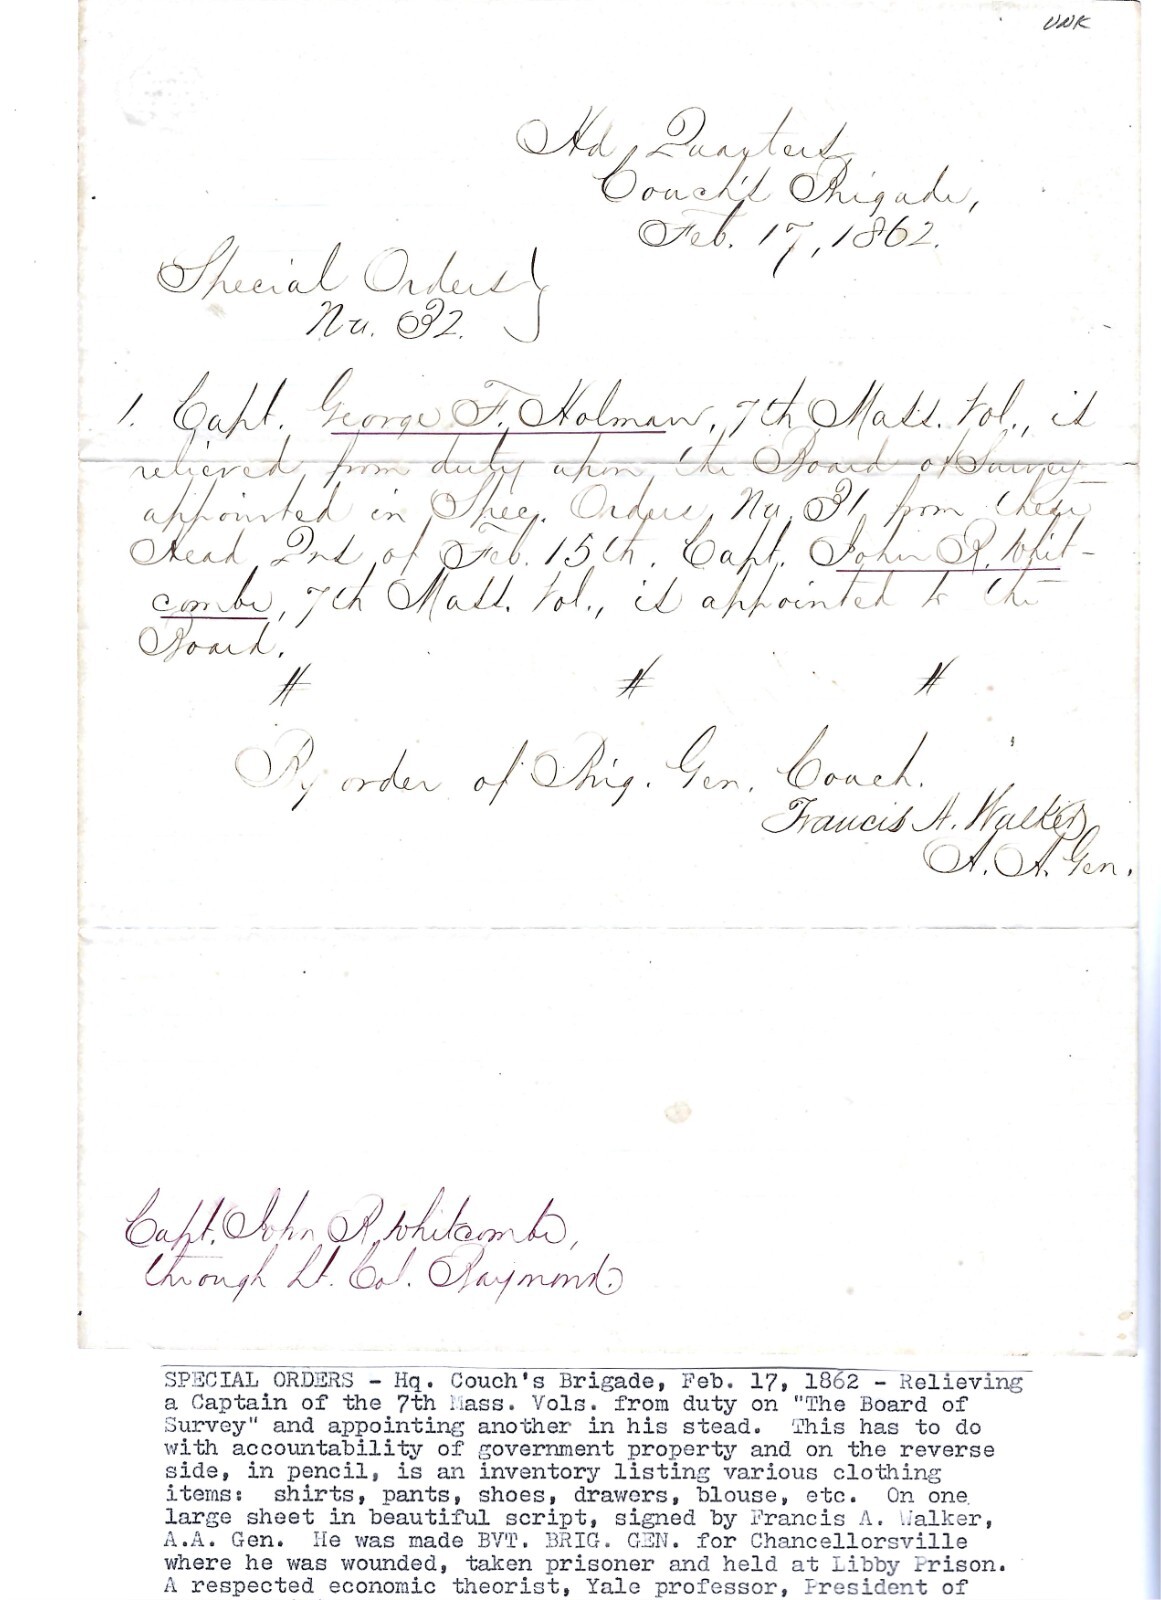 UNK
Hd Quarters
Couch's Brigade,
Feb. 17, 1862.
Special Orders }
No. 32.
1. Capt. George F. Holman, 7th Mass. Vol., is
relieved from duty upon the Board of Survey
appointed in Spec. Orders, No. 31 from these
Head Qrs of Feb. 15th. Capt. John R. Whit-
combe, 7th Mass. Vol., is appointed to the
Board.
# # #
By order of Brig. Gen. Couch.
Francis A. Walker
A. A. Gen.
Capt. John R. Whitcombe,
through Lt. Col. Raymond.
SPECIAL ORDERS - Hq. Couch's Brigade, Feb. 17, 1862 - Relieving
a Captain of the 7th Mass. Vols. from duty on "The Board of
Survey" and appointing another in his stead. This has to do
with accountability of government property and on the reverse
side, in pencil, is an inventory listing various clothing
items: shirts, pants, shoes, drawers, blouse, etc. On one
large sheet in beautiful script, signed by Francis A. Walker,
A.A. Gen. He was made BVT. BRIG. GEN. for Chancellorsville
where he was wounded, taken prisoner and held at Libby Prison.
A respected economic theorist, Yale professor, President of